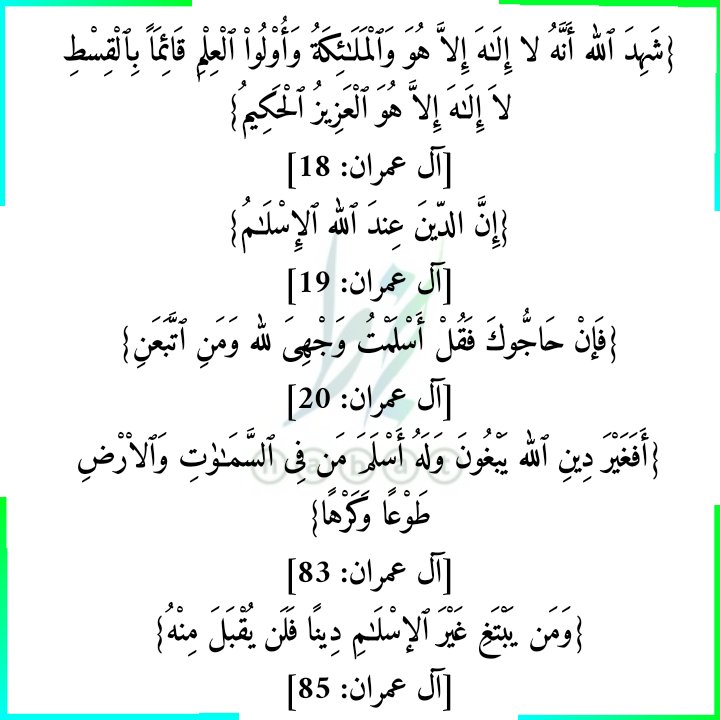 {شَهِدَ ٱلله أَنَّهُ لا إِلَـٰهَ إِلاَّ هُوَ وَٱلْمَلَـٰئِكَةُ وَأُوْلُواْ ٱلْعِلْمِ قَائِمَاً بِٱلْقِسْطِ
لاَ إِلَـٰهَ إِلاَّ هُوَ ٱلْعَزِيزُ ٱلْحَكِيمُ}
[آل عمران: 18]
{إِنَّ الدّينَ عِندَ ٱلله ٱلإِسْلَـٰمُ}
[آل عمران: 19]
{فَإنْ حَاجُّوكَ فَقُلْ أَسْلَمْتُ وَجْهِىَ لله وَمَنِ ٱتَّبَعَنِ}
[آل عمران: 20]
{أَفَغَيْرَ دِينِ ٱلله يَبْغُونَ وَلَهُ أَسْلَمَ مَن فِى ٱلسَّمَـٰوٰتِ وَٱلاْرْضِ
طَوْعًا وَكَرْهًا}
[آل عمران: 83]
{وَمَن يَبْتَغِ غَيْرَ ٱلإسْلَـٰمِ دِينًا فَلَن يُقْبَلَ مِنْهُ}
[آل عمران: 85]